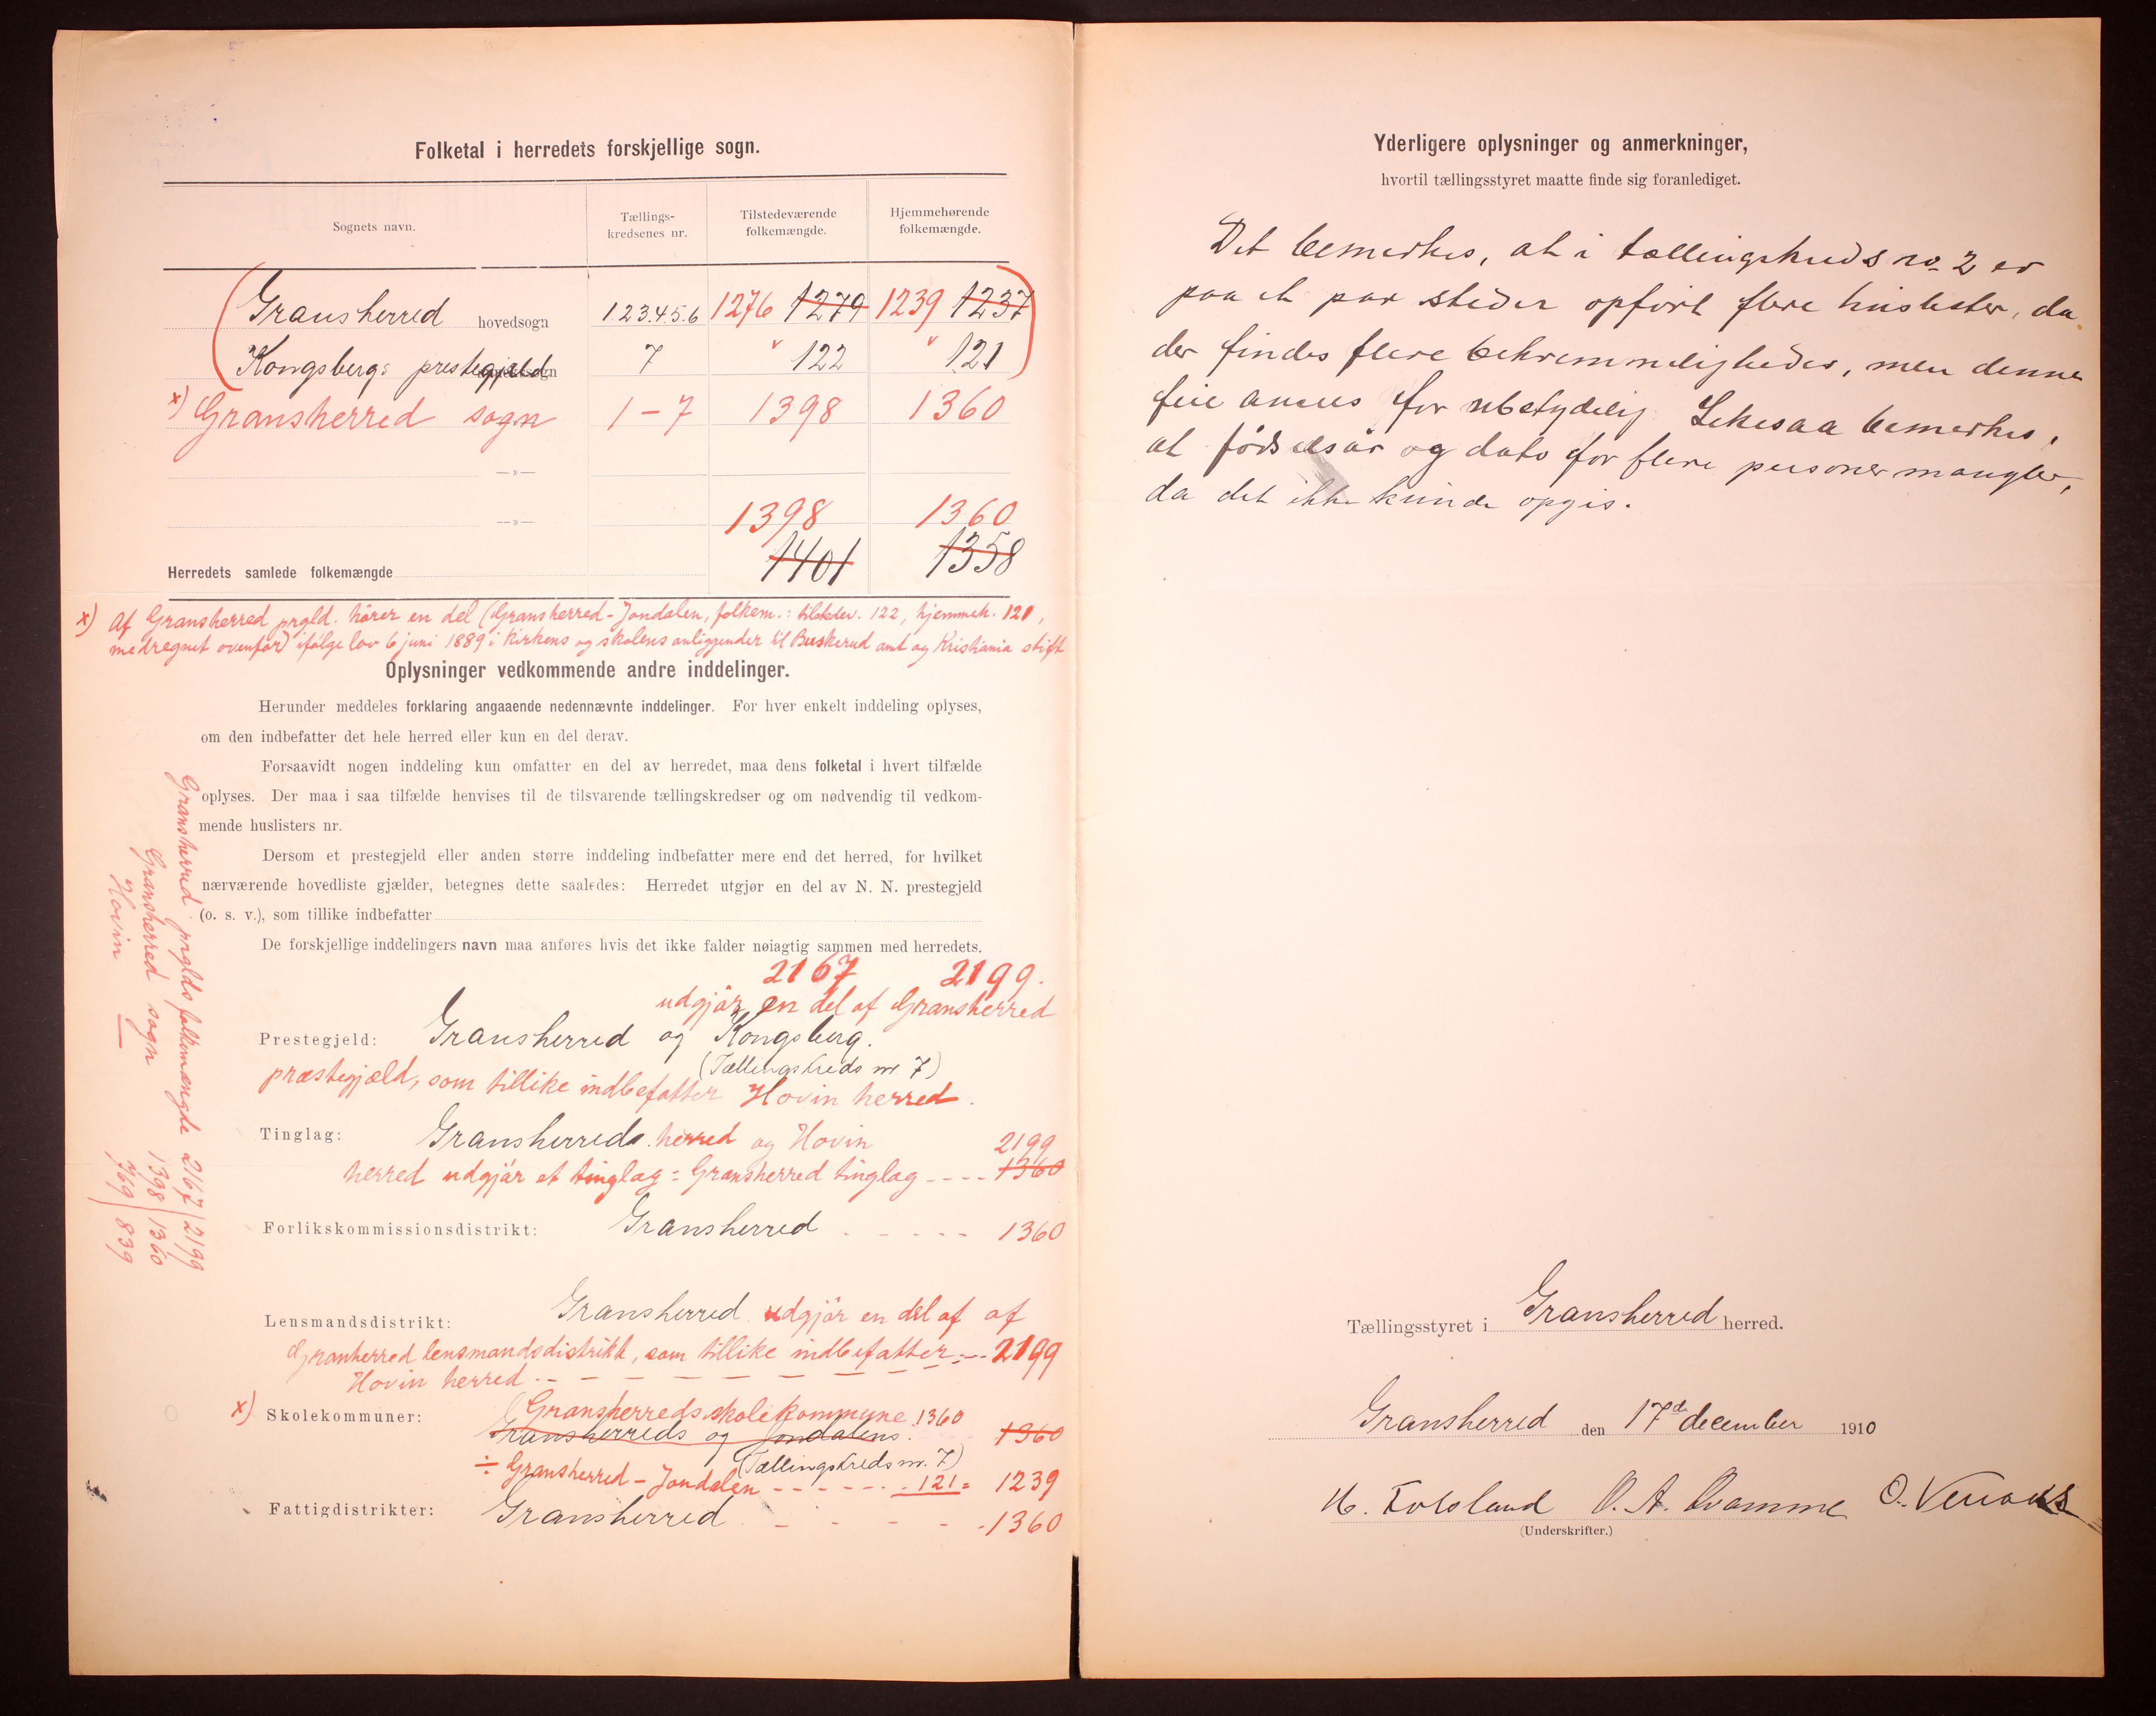 Folketal i herredets forskjellige sogn.
Sognets navn. Tællings-kredsenes nr. Tilstedeværende folkemængde. Hjemmehørende folkemængde.
Gransherred hovedsogn 1.2.3.4.5.6 1276 1279 1239 1237
Kongsbergs prestegjeld 7 " 122 " 121
x) Gransherred sogn 1-7 1398 1360
—»—
—»— 1398 1360
Herredets samlede folkemængde 1401 1358
x) Af Gransherred prgld. hører en del (Gransherred-Jondalen, folkem.: tilstdev. 122, hjemmeh. 121,
medregnet ovenfor) ifølge lov 6 juni 1889 i kirkens og skolens anliggender til Buskerud amt og Kristiania stift
Oplysninger vedkommende andre inddelinger.
Herunder meddeles forklaring angaaende nedennævnte inddelinger. For hver enkelt inddeling oplyses,
om den indbefatter det hele herred eller kun en del derav.
Forsaavidt nogen inddeling kun omfatter en del av herredet, maa dens folketal i hvert tilfælde
oplyses. Der maa i saa tilfælde henvises til de tilsvarende tællingskredser og om nødvendig til vedkom-
mende huslisters nr.
Dersom et prestegjeld eller anden større inddeling indbefatter mere end det herred, for hvilket
nærværende hovedliste gjælder, betegnes dette saaledes: Herredet utgjør en del av N. N. prestegjeld
(o. s. v.), som tillike indbefatter
De forskjellige inddelingers navn maa anføres hvis det ikke falder nøiagtig sammen med herredets.
2167 2199.
udgjør en del af Gransherred
Prestegjeld: Gransherred og Kongsberg.
(Tællingskreds nr 7)
præstegjæld, som tillike indbefatter Hovin herred.
Tinglag: Gransherreds herred og Hovin 2199
herred udgjør et tinglag = Gransherred tinglag ---- 1360
Forlikskommissionsdistrikt: Gransherred - - - - - 1360
Lensmandsdistrikt: Gransherred udgjør en del af af
Granherred lensmandsdistrikt, som tillike indbefatter --- 2199
Hovin herred - - - - - - - -
x) Skolekommuner: Gransherreds skolekommune 1360
Gransherreds og Jondalens. 1360
(Tællingskreds nr. 7)
÷ Gransherred - Jondalen - - - - - - 121 = 1239
Fattigdistrikter: Gransherred - - - - - 1360
Gransherred prglds folkemængde 2167 / 2199
Gransherred sogn 1398 / 1360
Hovin — 769 / 839
Yderligere oplysninger og anmerkninger,
hvortil tællingsstyret maatte finde sig foranlediget.
Det bemerkes, at i tællingskreds no 2 er
paa et par steder opført flere huslister, da
der findes flere bekvemmeligheder, men denne
feil ansees for ubetydelig. Likesaa bemerkes,
at fødselsår og dato for flere personer mangler,
da det ikke kunde opgis.
Tællingsstyret i Gransherred herred.
Gransherred den 17de december 1910
O. A. Kvamme
(Underskrifter.)